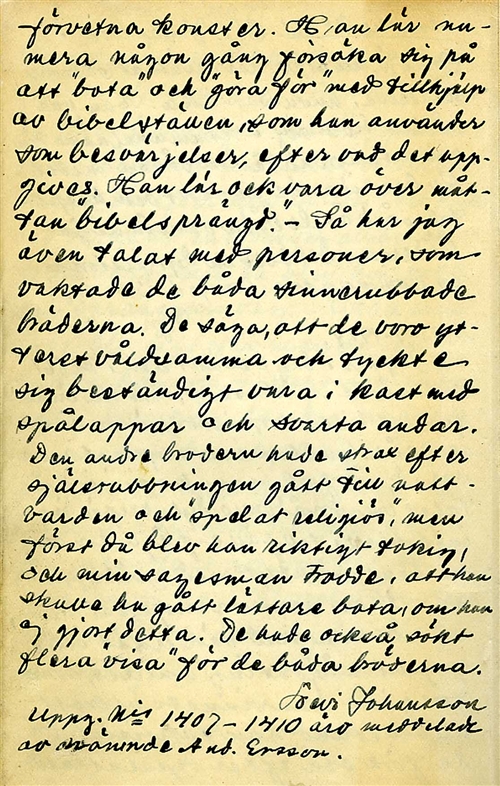 förvetna konster. Han lär nu-
mera någon gång försöka sig på
att "bota" och "göra för" med tillhjälp
av bibelställen, som han använder
som besvärjelser, efter vad det upp-
gives. Han lär ock vara över måt-
tan "bibelsprängd." – Så har jag
även talat med personer, som
vaktade de båda sinnerubbade
bröderna. De säga, att de voro yt-
terst våldsamma och tyckte
sig beständigt vara i kast med
spålappar och svarta andar.
Den andre brodern hade strax efter
själsrubbningen gått till natt-
varden och "spelat religiös", men
först då blev han riktigt tokig,
och min sagesman trodde, att han
skulle ha gått lättare bota, om han
ej gjort detta. De hade också sökt
flera "visa" för de båda bröderna.
Johansson
Uppg. Nis 1407 – 1410 äro meddelade
av And. Ersson.